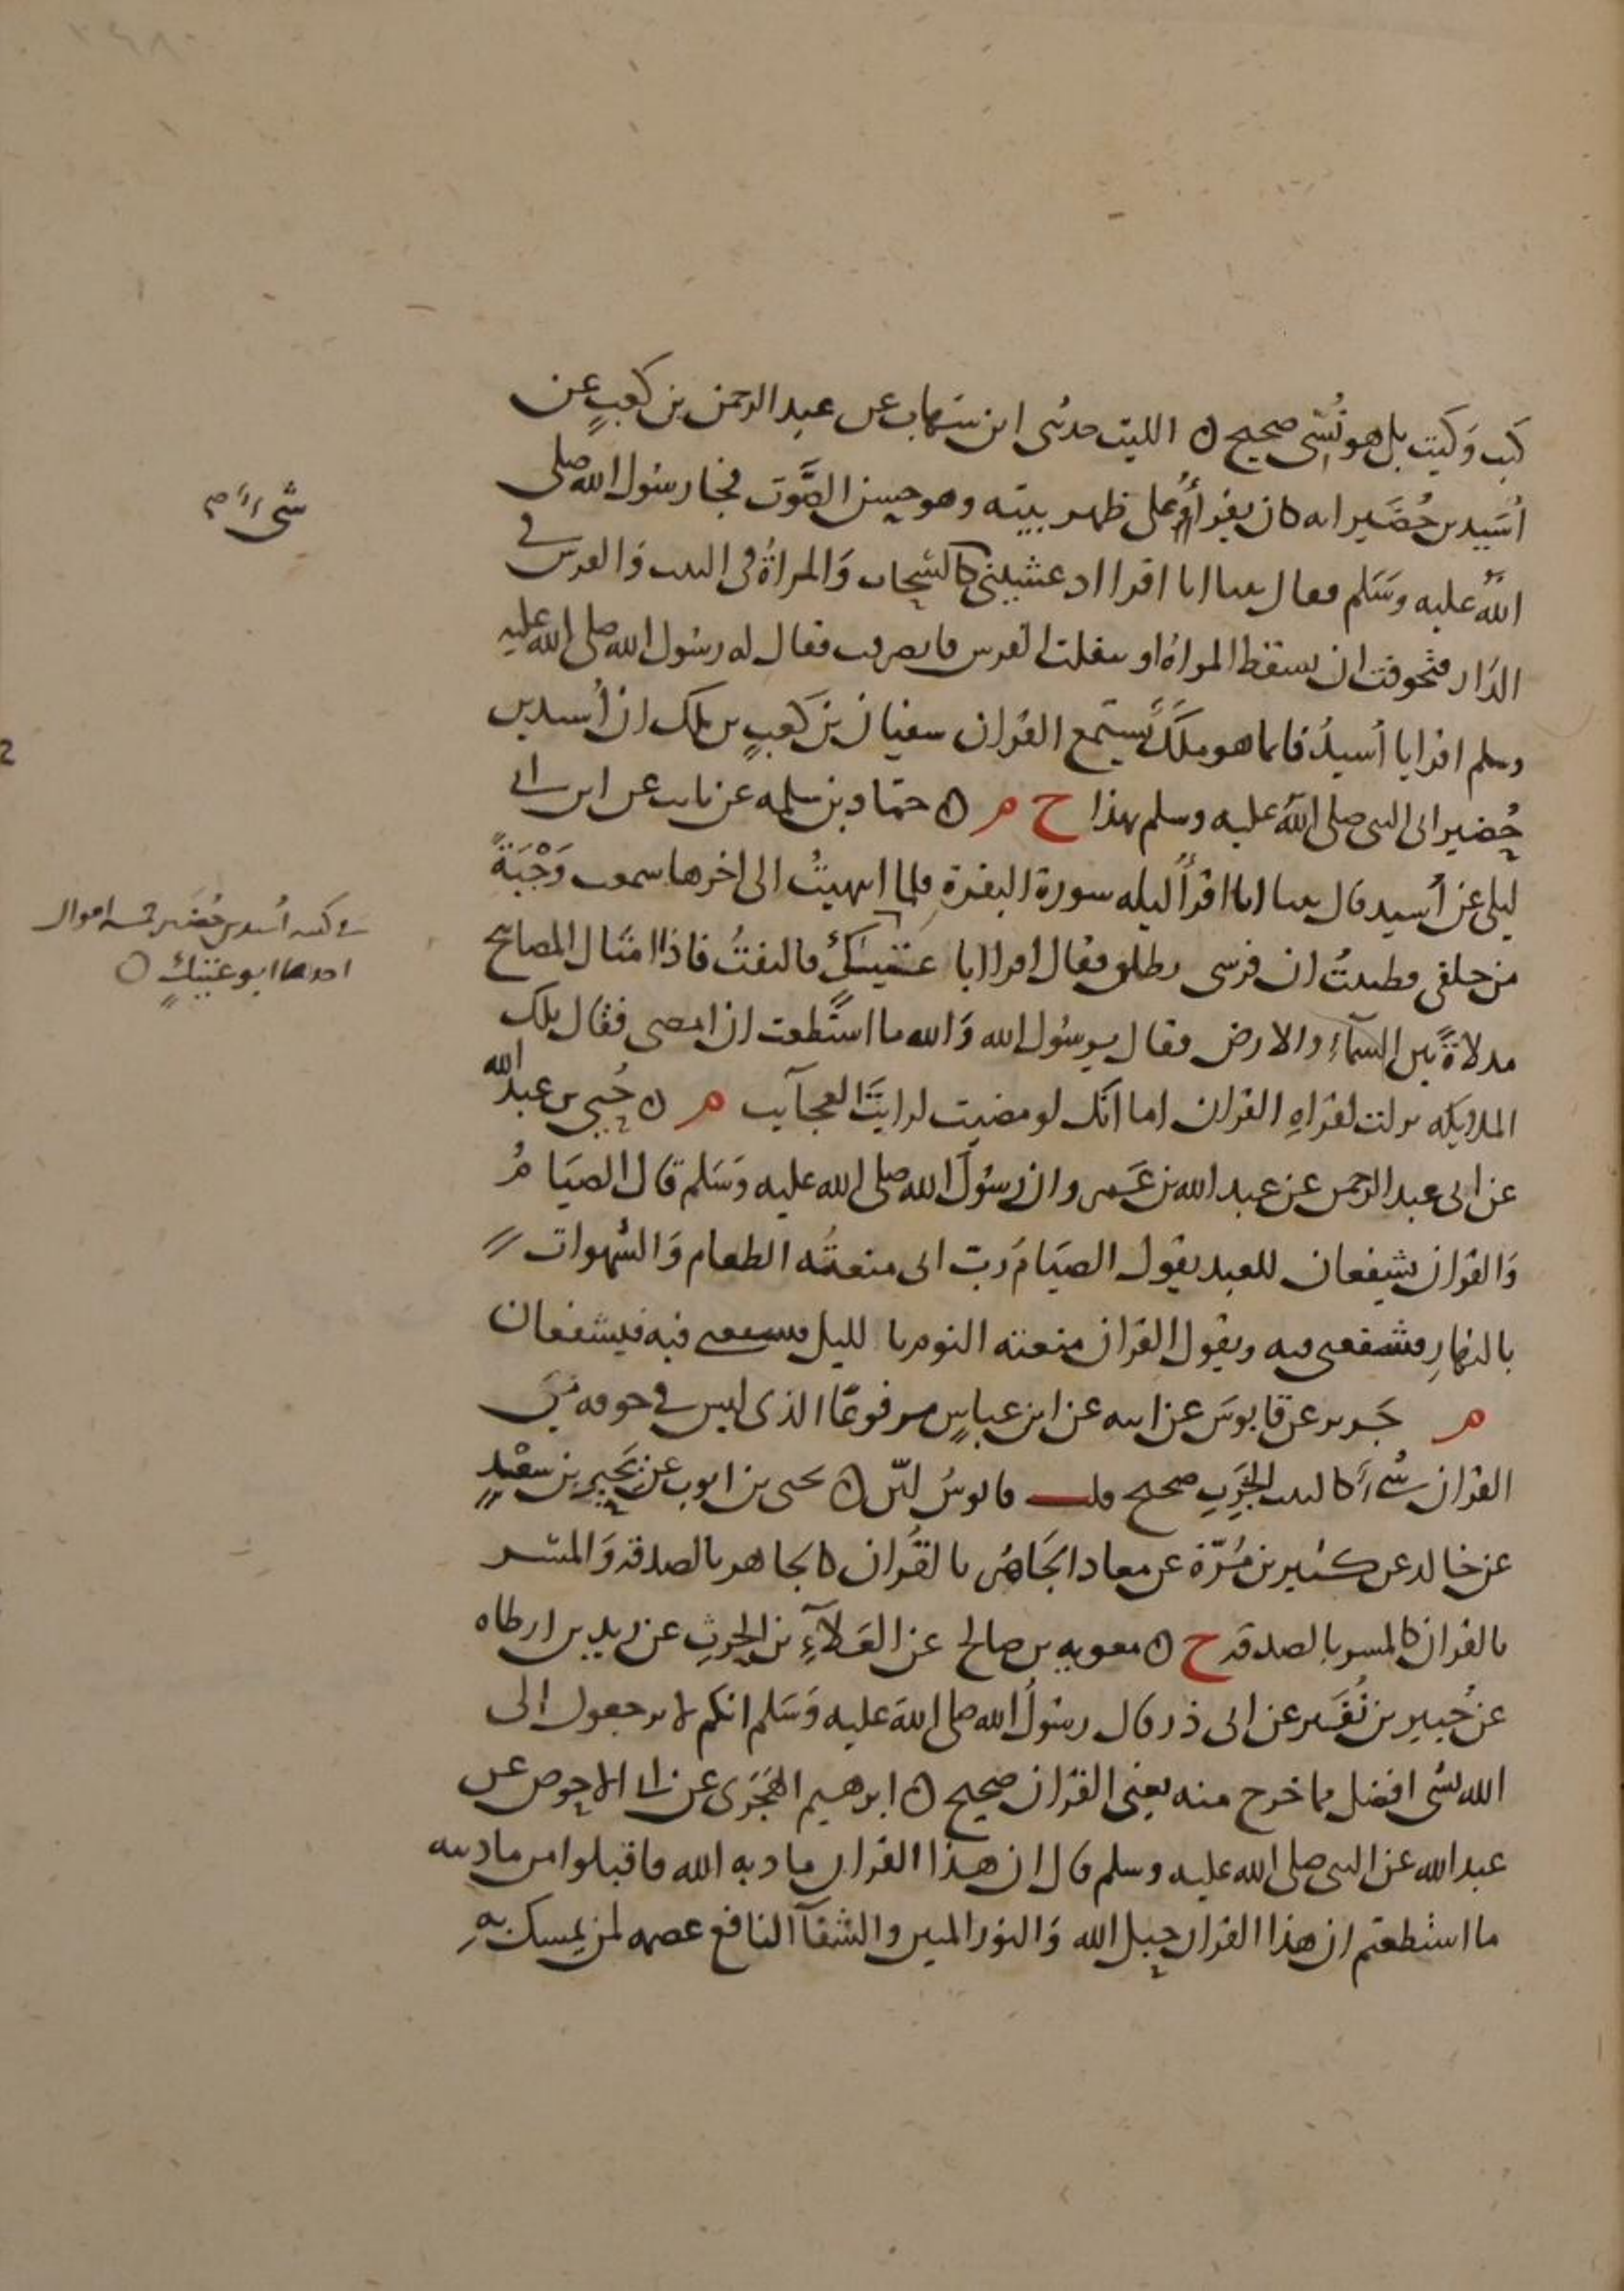 كيت وكيت بل هو نُسِّي صحيح ۝ الليث حدثني ابن شهاب عن عبد الرحمن بن كعبٍ عن
اُسَيد بن حُضَير انه كان يقرأُ على ظهر بيته وهو حسن الصَّوت فجا رسُول الله صلى
اللهُ عليه وسَلم فقال بينا انا اقرا اذ غشيني كالسَّحاب وَالمراةُ في البيت وَالفرس في
الدَار فتخوفت ان تسقط المراةُ او تنفلت الفرس فانصرفت فقال له رسُول الله صلى الله عليه
وسلم اقرا يا اُسيدُ فانما هو ملَكٌ يَستمع القران سفيان بن كعبٍ بن ملك ان اُسيد بن
حُضير اتى النبي صلى الله عليه وسلم بهذا ح م ۝ حمّاد بن سلمه عن ثابت عن ابن ابي
ليلى عن اُسيد قال بينا انا اقرأُ ليله سورة البقرة فلما انتهيتُ الى اخرها سمعت وَجْبَةً
من خلفي فظننتُ ان فرسي يطلق فقال اقرا ابا عتيكٍ فالتفتُ فاذا امثال المصابيح
مدلاةً بين السمآءِ والارض فقال يرسُول الله وَالله ما استَطعت ان امضي فقال تلك
الملايكه نزلت لقراهِ القران اما انّك لو مضيت لرايتَ العجآيب م ۝ حُيي بن عبد الله
عن ابي عبد الرحمن عن عبد الله بن عَمرو ان رسُولَ الله صلى الله عليه وَسَلم قال الصيَامُ
وَالقران يشفعان للعبد يقول الصيَامُ رَبّ اني منعتُه الطعام وَالشهوات
بالنهارِ فشفعني فيه ويقول القران منعته النوم بالليل فشفعني فيه فيشفعان
م جَرير عن قابوسَ عن ابيه عن ابن عباسٍ مرفوعًا الذي ليس في جوفه من
القران شيءٌ كالبيت الخرِبِ صحيح قلت قابوسُ ليّن ۝ يحيى بن ايوب عن بَحِيرِ بن سعْدٍ
عن خالد عن كثير بن مُرّة عن معاذ الجَاهرُ بالقُران كالجاهر بالصدقه وَالمسر
بالقران كالمسر بالصدقه ح ۝ معويه بن صالح عن العَلآءِ بن الحرثِ عن زيد بن ارطاه
عن جُبير بن نُفَير عن ابي ذر قال رسُولُ الله صلى الله عليه وَسَلم انكم لا ترجعون الى
الله بشي افضل مما خرج منه يعني القران صحيح ۝ ابرهيم الهَجَري عن ابي الاحوص عن
عبد الله عن النبي صلى الله عليه وسلم قال ان هذا القران مادبه الله فاقبلوا من مادبته
ما استطعتم ان هذا القران حبل الله وَالنور المبين والشفآ النافع عصمه لمن تمسك بهِ
في كنيه اُسيد بن حُضَير خمسه اقوال
احدها ابو عتيكٍ ۝